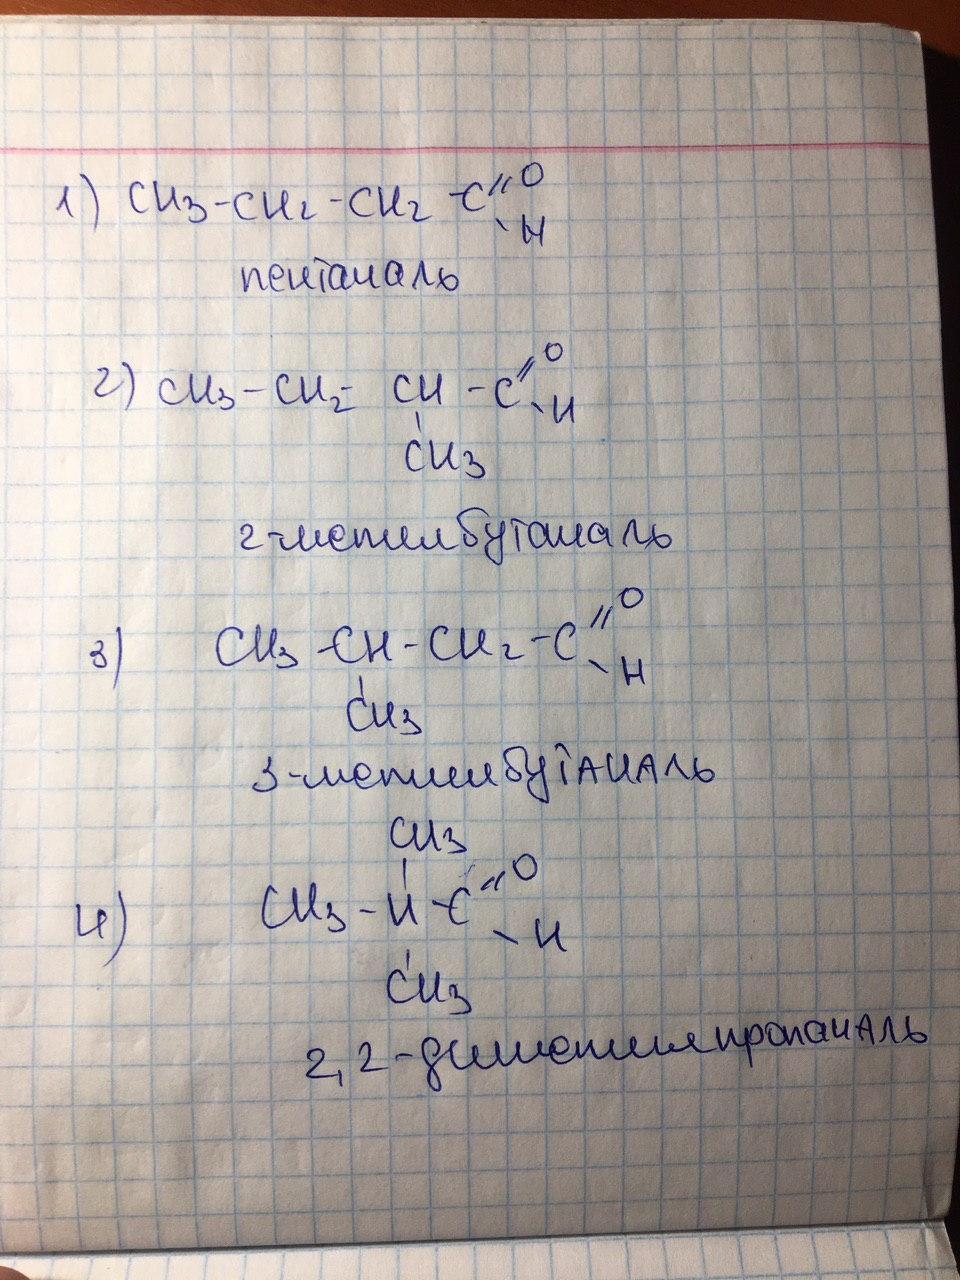 1) CH3-CH2-CH2-C=O
-H
пентаналь
2) CH3-CH2-CH-C=O
-H
CH3
2-метилбутаналь
3) CH3-CH-CH2-C=O
-H
CH3
3-метилбутАНАЛЬ
CH3
4) CH3-H-C=O
-H
CH3
2,2-диметилпропанАЛЬ